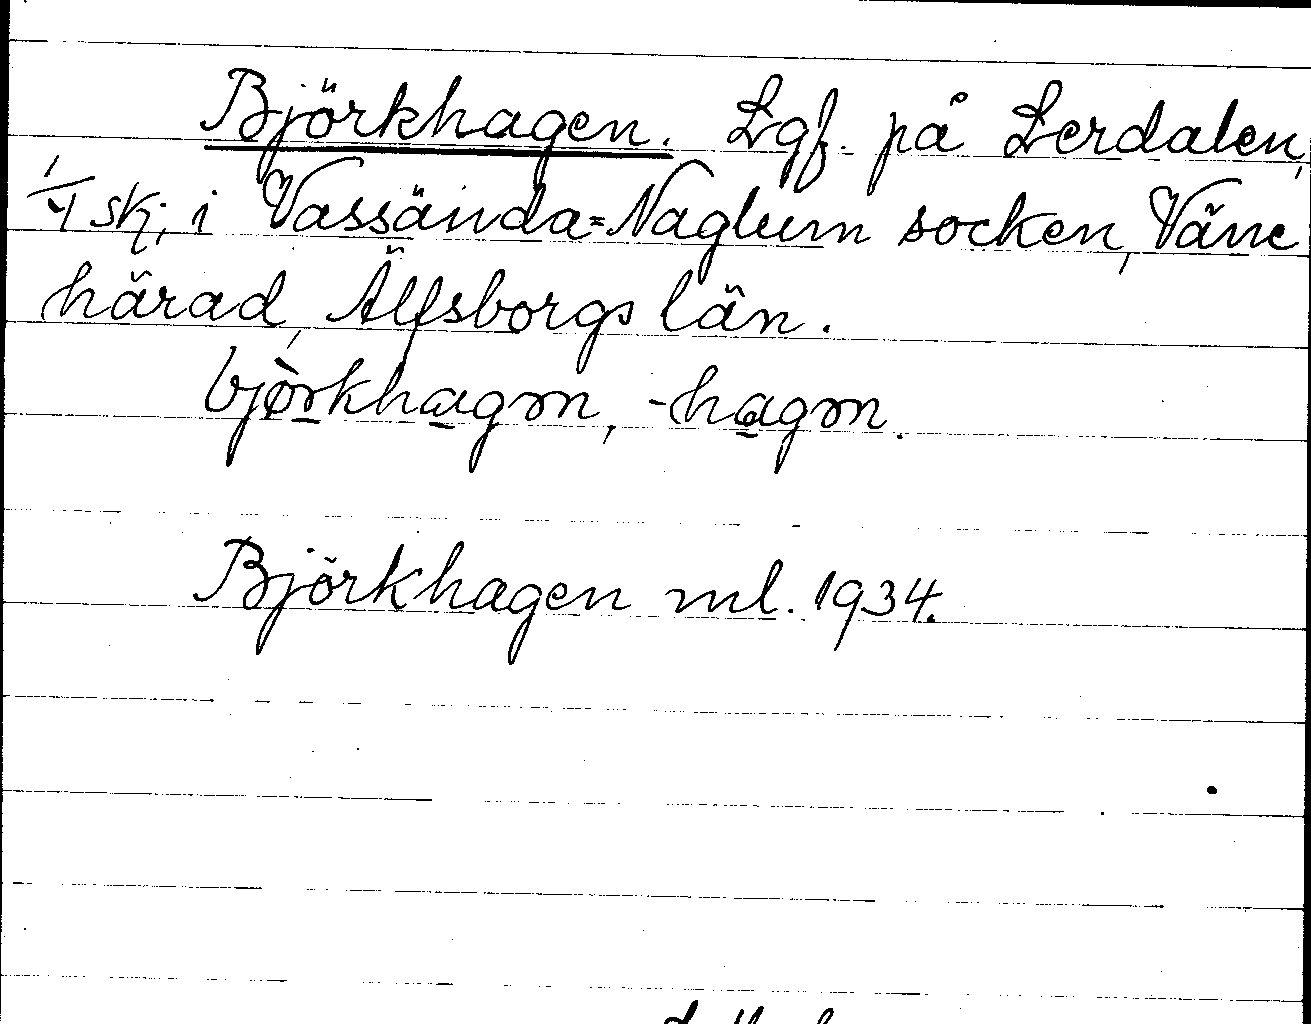 Björkhagen. Lgf. på Lerdalen,
1/4 sk; i Vassända=Naglum socken, Väne
härad, Älfsborgs län.
bjòrkhagm, -hagm.
Björkhagen ml. 1934.